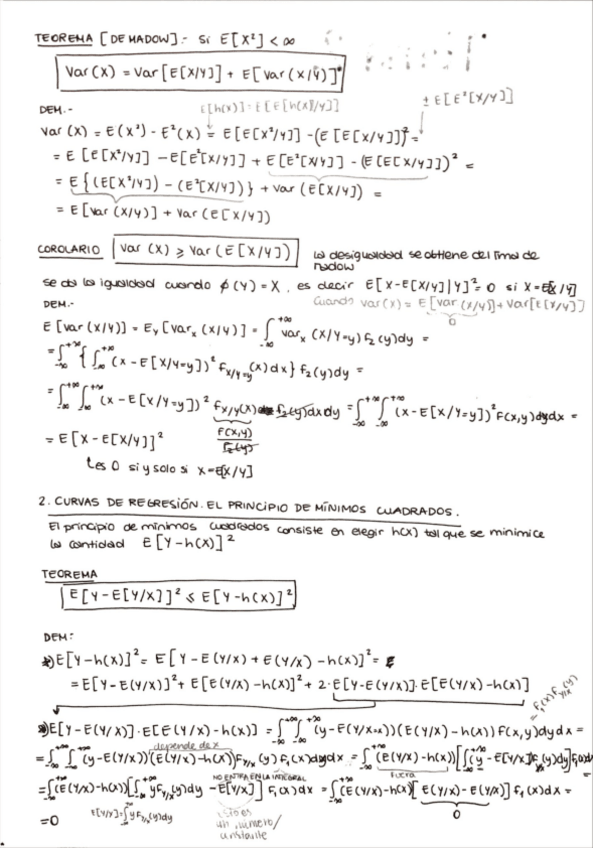 TEOREMA [DE MADOW].- Si E[X²] < ∞
Var(X) = Var[E[X/Y]] + E[Var(X/Y)]
DEM.-
E[h(X)] = E[E[h(X)/Y]]
± E[E²[X/Y]]
Var(X) = E(X²) - E²(X) = E[E[X²/Y]] - (E[E[X/Y]])² =
= E[E[X²/Y]] - E[E²[X/Y]] + E[E²[X/Y]] - (E[E[X/Y]])² =
= E{(E[X²/Y]) - (E²[X/Y])} + Var(E[X/Y]) =
= E[Var(X/Y)] + Var(E[X/Y])
COROLARIO Var(X) ≥ Var(E[X/Y]) La desigualdad se obtiene del Tma de
Madow
se da la igualdad cuando φ(Y) = X, es decir E[X-E[X/Y]|Y]² = 0 si X=E[X/Y]
Cuando Var(X) = E[Var(X/Y)] + Var[E[X/Y]]
0
DEM.-
E[Var(X/Y)] = E_Y[Var_X(X/Y)] = ∫_{-∞}^{+∞} Var_X(X/Y=y) f₂(y)dy =
= ∫_{-∞}^{+∞} { ∫_{-∞}^{+∞} (x - E[X/Y=y])² f_{X/Y=y}(x)dx } f₂(y)dy =
= ∫_{-∞}^{+∞} ∫_{-∞}^{+∞} (x - E[X/Y=y])² f_{X/Y}(x) f₂(y)dxdy = ∫_{-∞}^{+∞} ∫_{-∞}^{+∞} (x - E[X/Y=y])² f(x,y)dydx =
f(x,y)
f₂(y)
= E[X - E[X/Y]]²
↳ es 0 si y solo si X=E[X/Y]
2. CURVAS DE REGRESIÓN. EL PRINCIPIO DE MÍNIMOS CUADRADOS.
El principio de mínimos cuadrados consiste en elegir h(X) tal que se minimice
la cantidad E[Y-h(X)]²
TEOREMA
E[Y-E[Y/X]]² ≤ E[Y-h(X)]²
DEM:
E[Y-h(X)]² = E[Y - E(Y/X) + E(Y/X) - h(X)]² =
= E[Y-E(Y/X)]² + E[E(Y/X) - h(X)]² + 2·E[Y-E(Y/X)]·E[E(Y/X)-h(X)]
= f₁(x)f_{Y/X}(y)
E[Y-E(Y/X)]·E[E(Y/X)-h(X)] = ∫_{-∞}^{+∞} ∫_{-∞}^{+∞} (y-E(Y/X=x))(E(Y/X)-h(X)) f(x,y)dydx =
depende de x
= ∫_{-∞}^{+∞} ∫_{-∞}^{+∞} (y-E(Y/X))(E(Y/X)-h(X)) f_{Y/X}(y) f₁(x)dydx = ∫_{-∞}^{+∞} (E(Y/X)-h(X)) [∫_{-∞}^{+∞} (y - E[Y/X]) f_{Y/X}(y)dy] f₁(x)dx
fuera
NO ENTRA EN LA INTEGRAL
= ∫_{-∞}^{+∞} (E(Y/X)-h(X)) [∫_{-∞}^{+∞} y f_{Y/X}(y)dy - E[Y/X]] f₁(x)dx = ∫_{-∞}^{+∞} (E(Y/X)-h(X)) [E(Y/X) - E(Y/X)] f₁(x)dx =
0
= 0
E[Y/X] = ∫_{-∞}^{+∞} y f_{Y/X}(y)dy
Esto es
un número/
constante